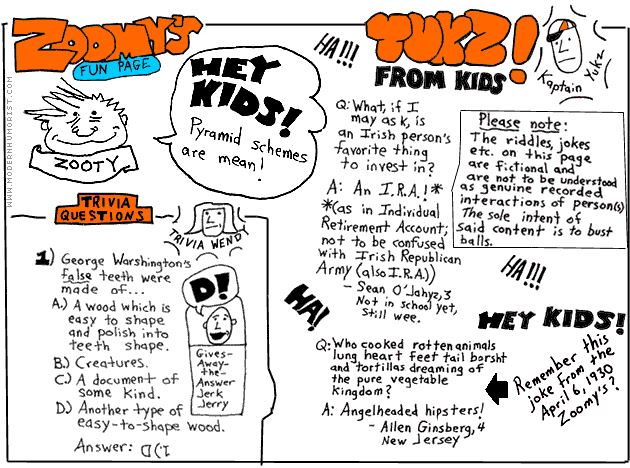 ZOOMY'S
FUN PAGE
HEY
KIDS!
Pyramid schemes
are mean!
ZOOTY
WWW.MODERNHUMORIST.COM
TRIVIA
QUESTIONS
TRIVIA WENDY
1) George Warshington's
false teeth were
made of...
A.) A wood which is
easy to shape
and polish into
teeth shape.
B.) Creatures.
C.) A document of
some kind.
D.) Another type of
easy-to-shape wood.
Answer: D).)
D!
Gives-
Away-
the-
Answer
Jerk
Jerry
HA!!!
YUKZ!
FROM KIDS
Kaptain Yukz
Q: What, if I
may ask, is
an Irish person's
favorite thing
to invest in?
A: An I.R.A.!*
*(as in Individual
Retirement Account;
not to be confused
with Irish Republican
Army (also I.R.A.))
- Sean O'Jahyz, 3
Not in school yet,
still wee.
Please note:
The riddles, jokes
etc. on this page
are fictional and
are not to be understood
as genuine recorded
interactions of person(s)
The sole intent of
said content is to bust
balls.
HA!!!
HA!
HEY KIDS!
Q: Who cooked rotten animals
lung heart feet tail borsht
and tortillas dreaming of
the pure vegetable
Kingdom?
A: Angelheaded hipsters!
- Allen Ginsberg, 4
New Jersey
Remember this
joke from the
April 6, 1930
Zoomy's?